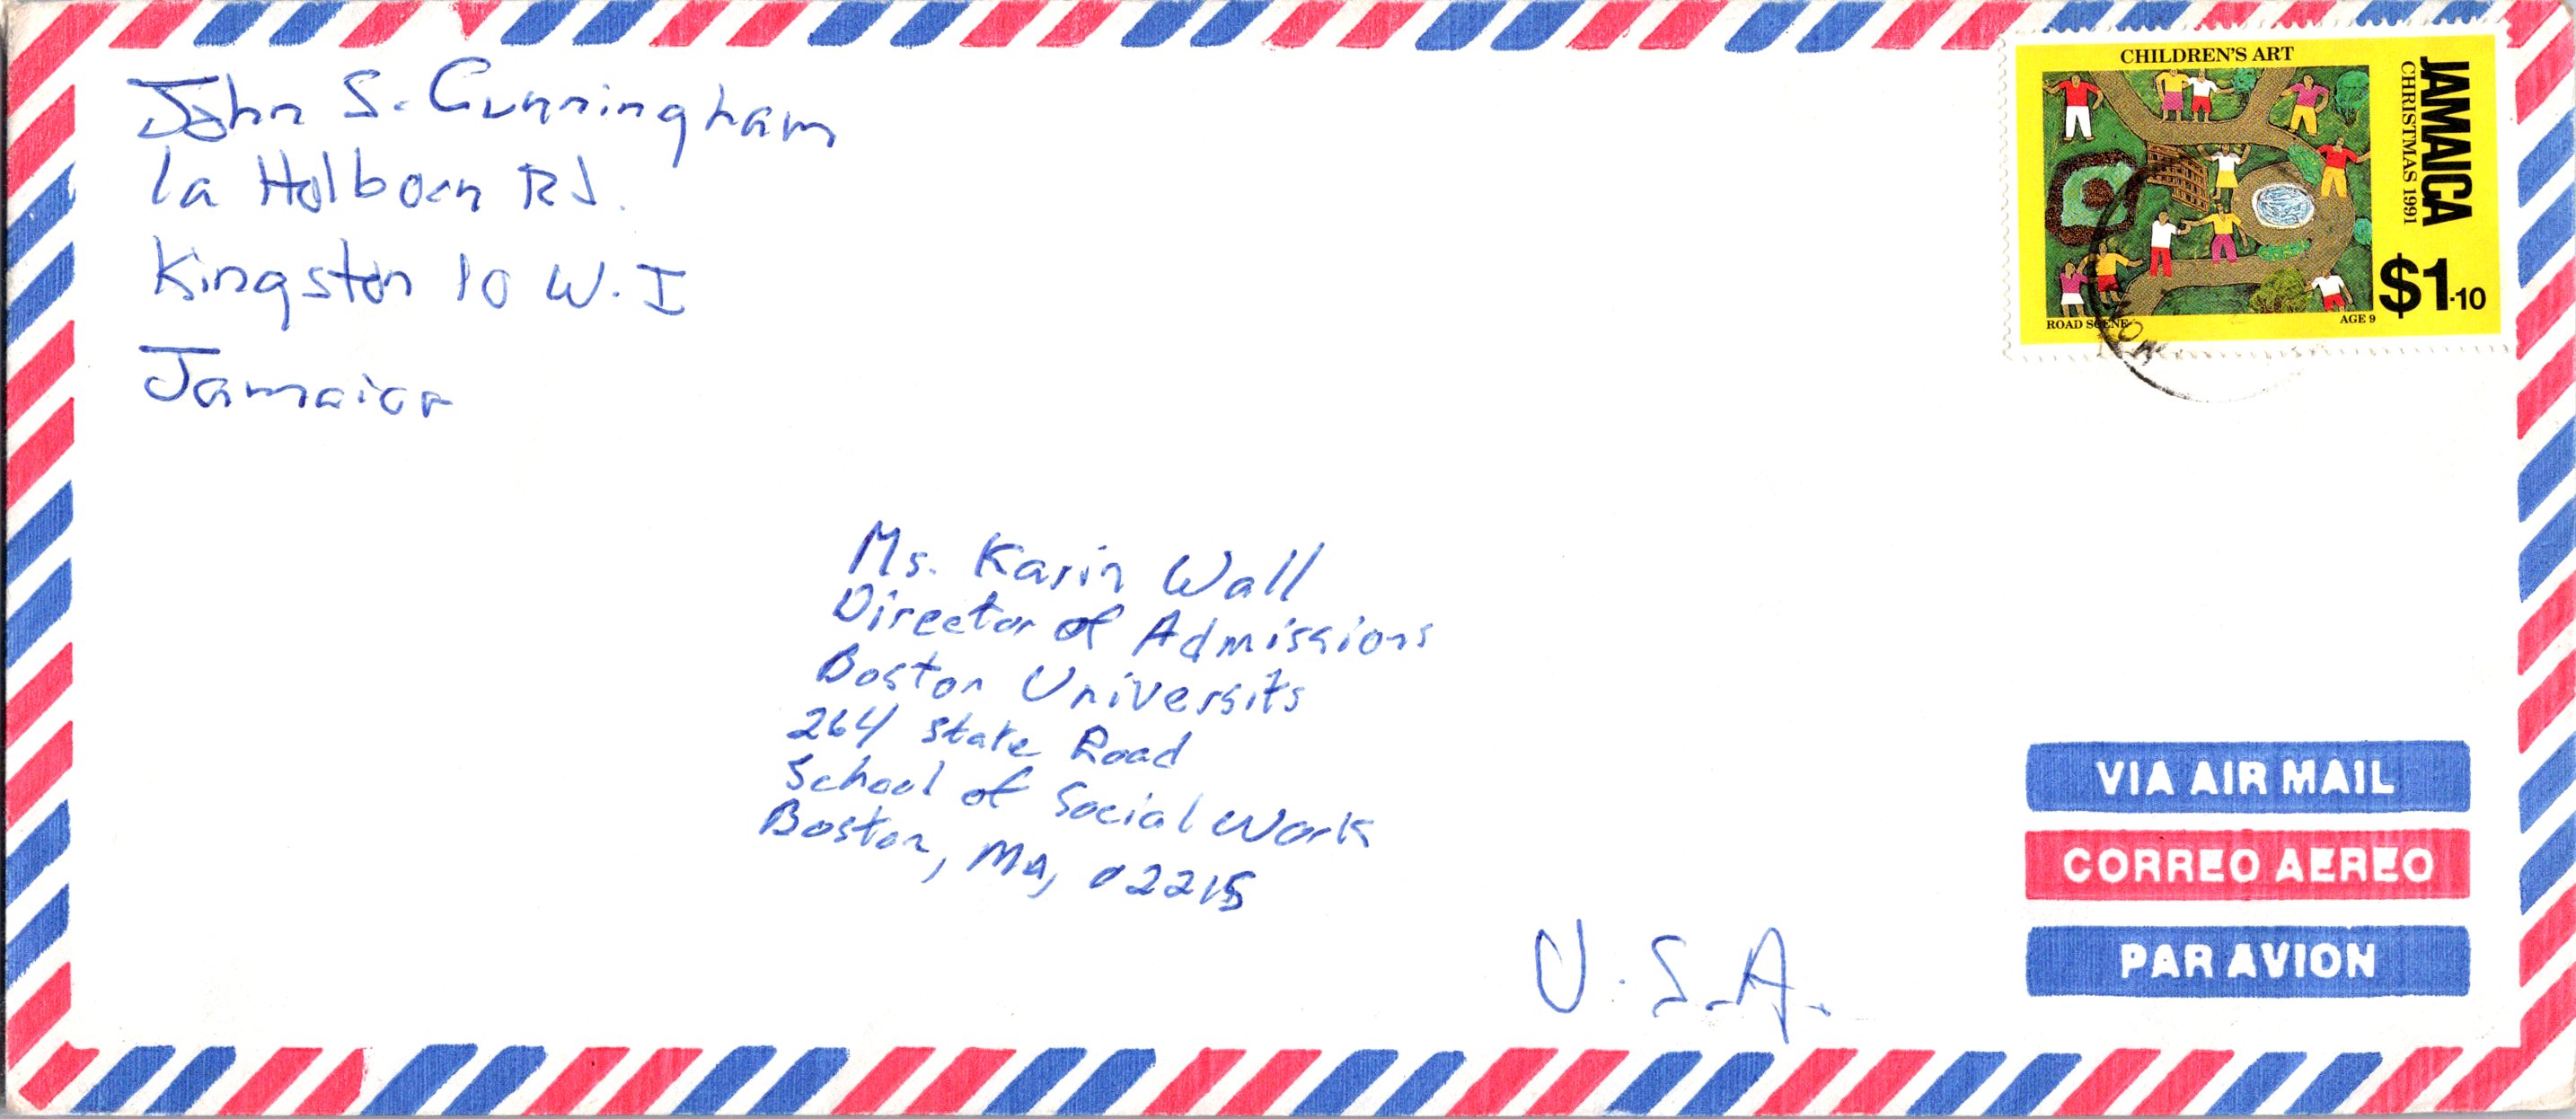 John S. Cunningham
1a Holborn Rd.
Kingston 10 W.I
Jamaica
CHILDREN'S ART
JAMAICA
CHRISTMAS 1991
$1.10
ROAD SCENE
AGE 9
Ms. Karin Wall
Director of Admissions
Boston University
264 State Road
School of Social Work
Boston, MA, 02215
U.S.A.
VIA AIR MAIL
CORREO AEREO
PAR AVION